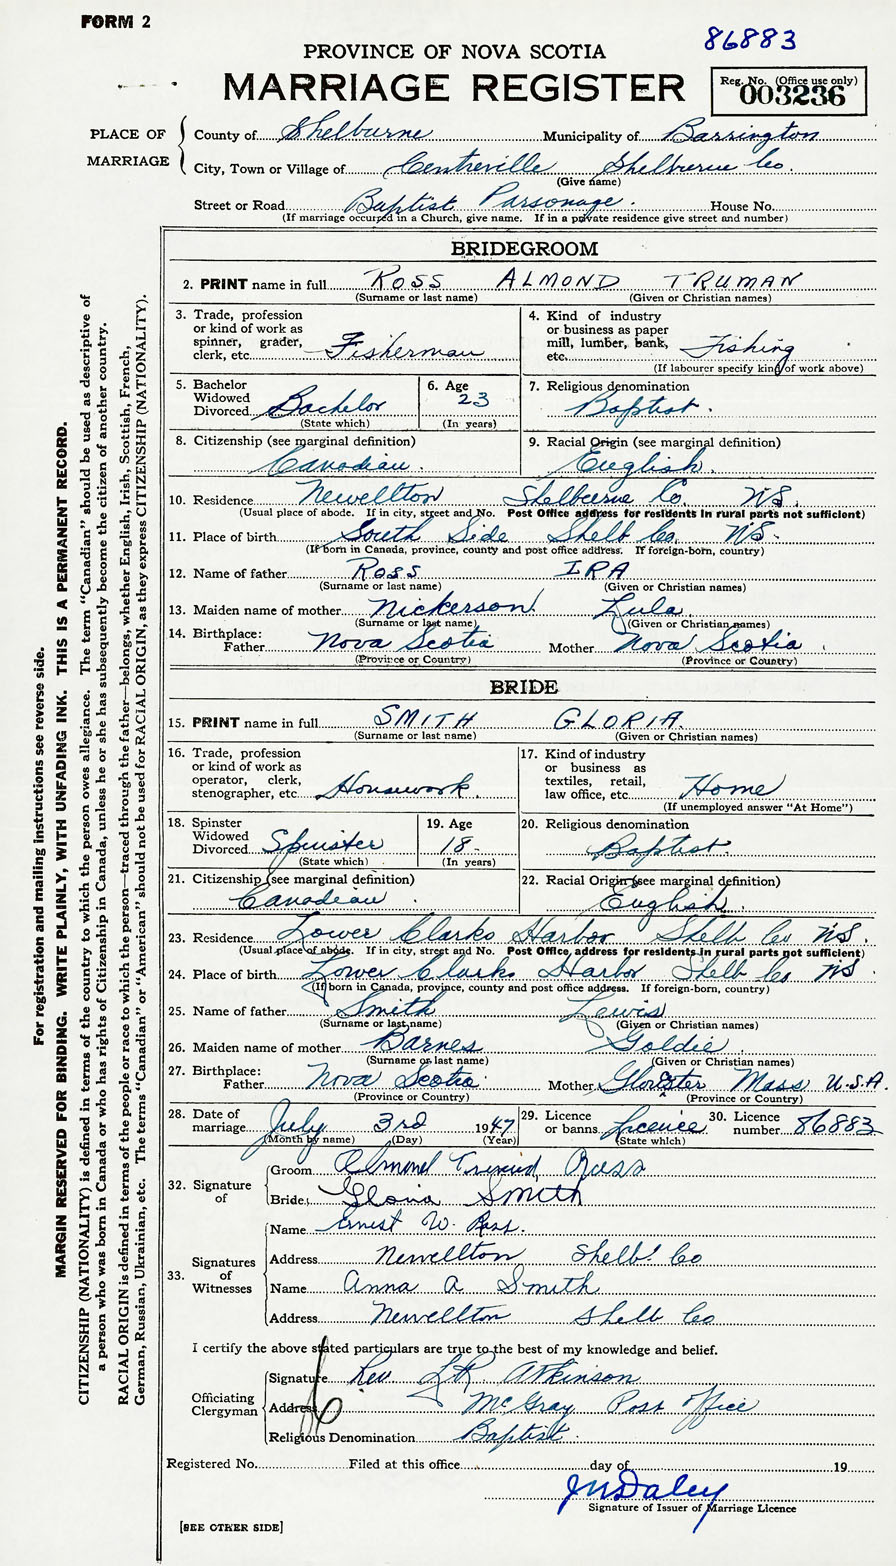 FORM 2
86883
PROVINCE OF NOVA SCOTIA
MARRIAGE REGISTER
Reg. No. (Office use only)
003236
PLACE OF MARRIAGE
County of Shelburne Municipality of Barrington
City, Town or Village of Centreville Shelburne Co.
(Give name)
Street or Road Baptist Parsonage. House No.
(If marriage occurred in a Church, give name. If in a private residence give street and number)
BRIDEGROOM
2. PRINT name in full ROSS ALMOND TRUMAN
(Surname or last name) (Given or Christian names)
3. Trade, profession
or kind of work as
spinner, grader,
clerk, etc. Fisherman
4. Kind of industry
or business as paper
mill, lumber, bank,
etc. Fishing
(If labourer specify kind of work above)
5. Bachelor
Widowed
Divorced Bachelor
(State which)
6. Age
23
(In years)
7. Religious denomination
Baptist.
8. Citizenship (see marginal definition)
Canadian.
9. Racial Origin (see marginal definition)
English.
10. Residence Newellton Shelburne Co. N.S.
(Usual place of abode. If in city, street and No. Post Office address for residents in rural parts not sufficient)
11. Place of birth South Side Shelb Co. N.S.
(If born in Canada, province, county and post office address. If foreign-born, country)
12. Name of father ROSS IRA
(Surname or last name) (Given or Christian names)
13. Maiden name of mother Nickerson Lula
(Surname or last name) (Given or Christian names)
14. Birthplace:
Father Nova Scotia Mother Nova Scotia
(Province or Country) (Province or Country)
BRIDE
15. PRINT name in full SMITH GLORIA
(Surname or last name) (Given or Christian names)
16. Trade, profession
or kind of work as
operator, clerk,
stenographer, etc. Housework.
17. Kind of industry
or business as
textiles, retail,
law office, etc. Home
(If unemployed answer "At Home")
18. Spinster
Widowed
Divorced Spinster
(State which)
19. Age
18
(In years)
20. Religious denomination
Baptist.
21. Citizenship (see marginal definition)
Canadian
22. Racial Origin (see marginal definition)
English.
23. Residence Lower Clarks Harbor Shelb Co N.S.
(Usual place of abode. If in city, street and No. Post Office address for residents in rural parts not sufficient)
24. Place of birth Lower Clarks Harbor Shelb Co NS
(If born in Canada, province, county and post office address. If foreign-born, country)
25. Name of father Smith Lewis
(Surname or last name) (Given or Christian names)
26. Maiden name of mother Barnes Goldie
(Surname or last name) (Given or Christian names)
27. Birthplace:
Father Nova Scotia Mother Mass U.S.A.
(Province or Country) (Province or Country)
28. Date of
marriage July 3rd 1947
(Month by name) (Day) (Year)
29. Licence
or banns Licence
(State which)
30. Licence
number 86883
32. Signature of
Groom Almond Ross
Bride Gloria Smith
33. Signatures of Witnesses
Name Ernest W. Ross.
Address Newellton Shelb. Co
Name Anna A Smith
Address Newellton Shelb Co
I certify the above stated particulars are true to the best of my knowledge and belief.
Officiating Clergyman
Signature Rev Atkinson
Address McGray Post Office
Religious Denomination Baptist.
Registered No. Filed at this office day of 19
Daley
Signature of Issuer of Marriage Licence
[SEE OTHER SIDE]
For registration and mailing instructions see reverse side.
MARGIN RESERVED FOR BINDING. WRITE PLAINLY, WITH UNFADING INK. THIS IS A PERMANENT RECORD.
CITIZENSHIP (NATIONALITY) is defined in terms of the country to which the person owes allegiance. The term "Canadian" should be used as descriptive of
a person who was born in Canada or who has rights of Citizenship in Canada, unless he or she has subsequently become the citizen of another country.
RACIAL ORIGIN is defined in terms of the people or race to which the person—traced through the father—belongs, whether English, Irish, Scottish, French,
German, Russian, Ukrainian, etc. The terms "Canadian" or "American" should not be used for RACIAL ORIGIN, as they express CITIZENSHIP (NATIONALITY).